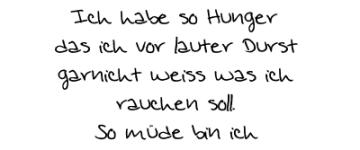 Ich habe so Hunger
das ich vor lauter Durst
garnicht weiss was ich
rauchen soll.
So müde bin ich